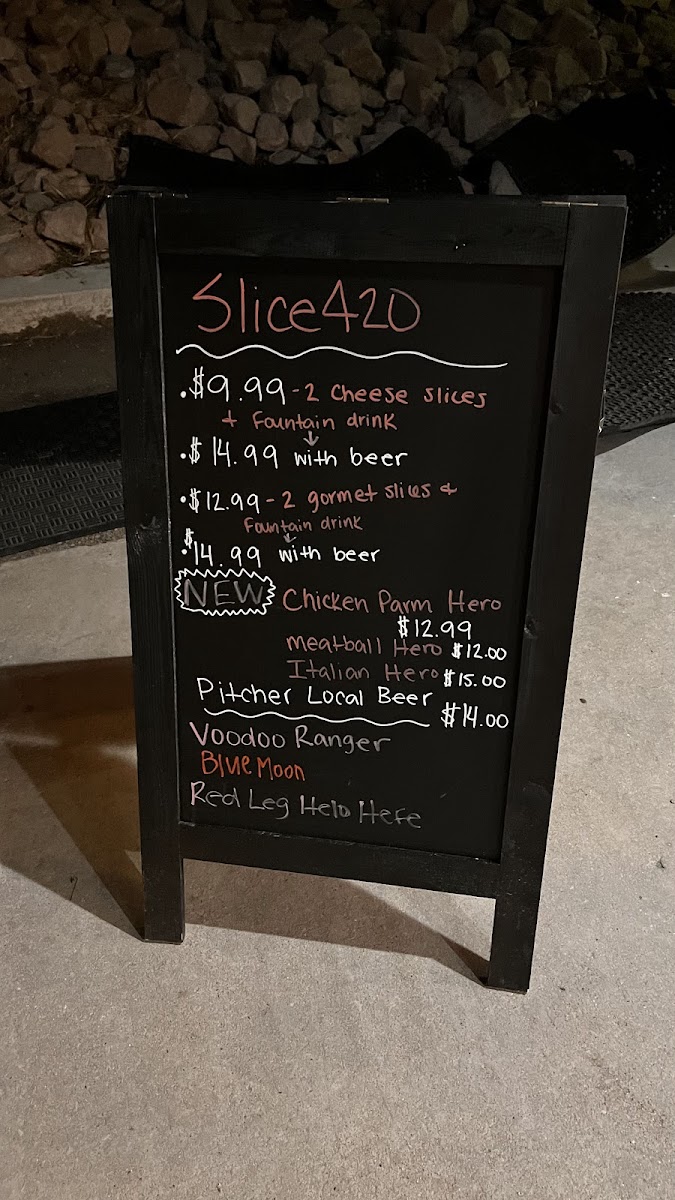 Slice420
• $9.99 - 2 Cheese slices
+ Fountain drink
• $14.99 with beer
• $12.99 - 2 gormet slices +
Fountain drink
• $14.99 with beer
NEW Chicken Parm Hero
$12.99
meatball Hero $12.00
Italian Hero $15.00
Pitcher Local Beer
$14.00
Voodoo Ranger
Blue Moon
Red Leg Helo Hefe